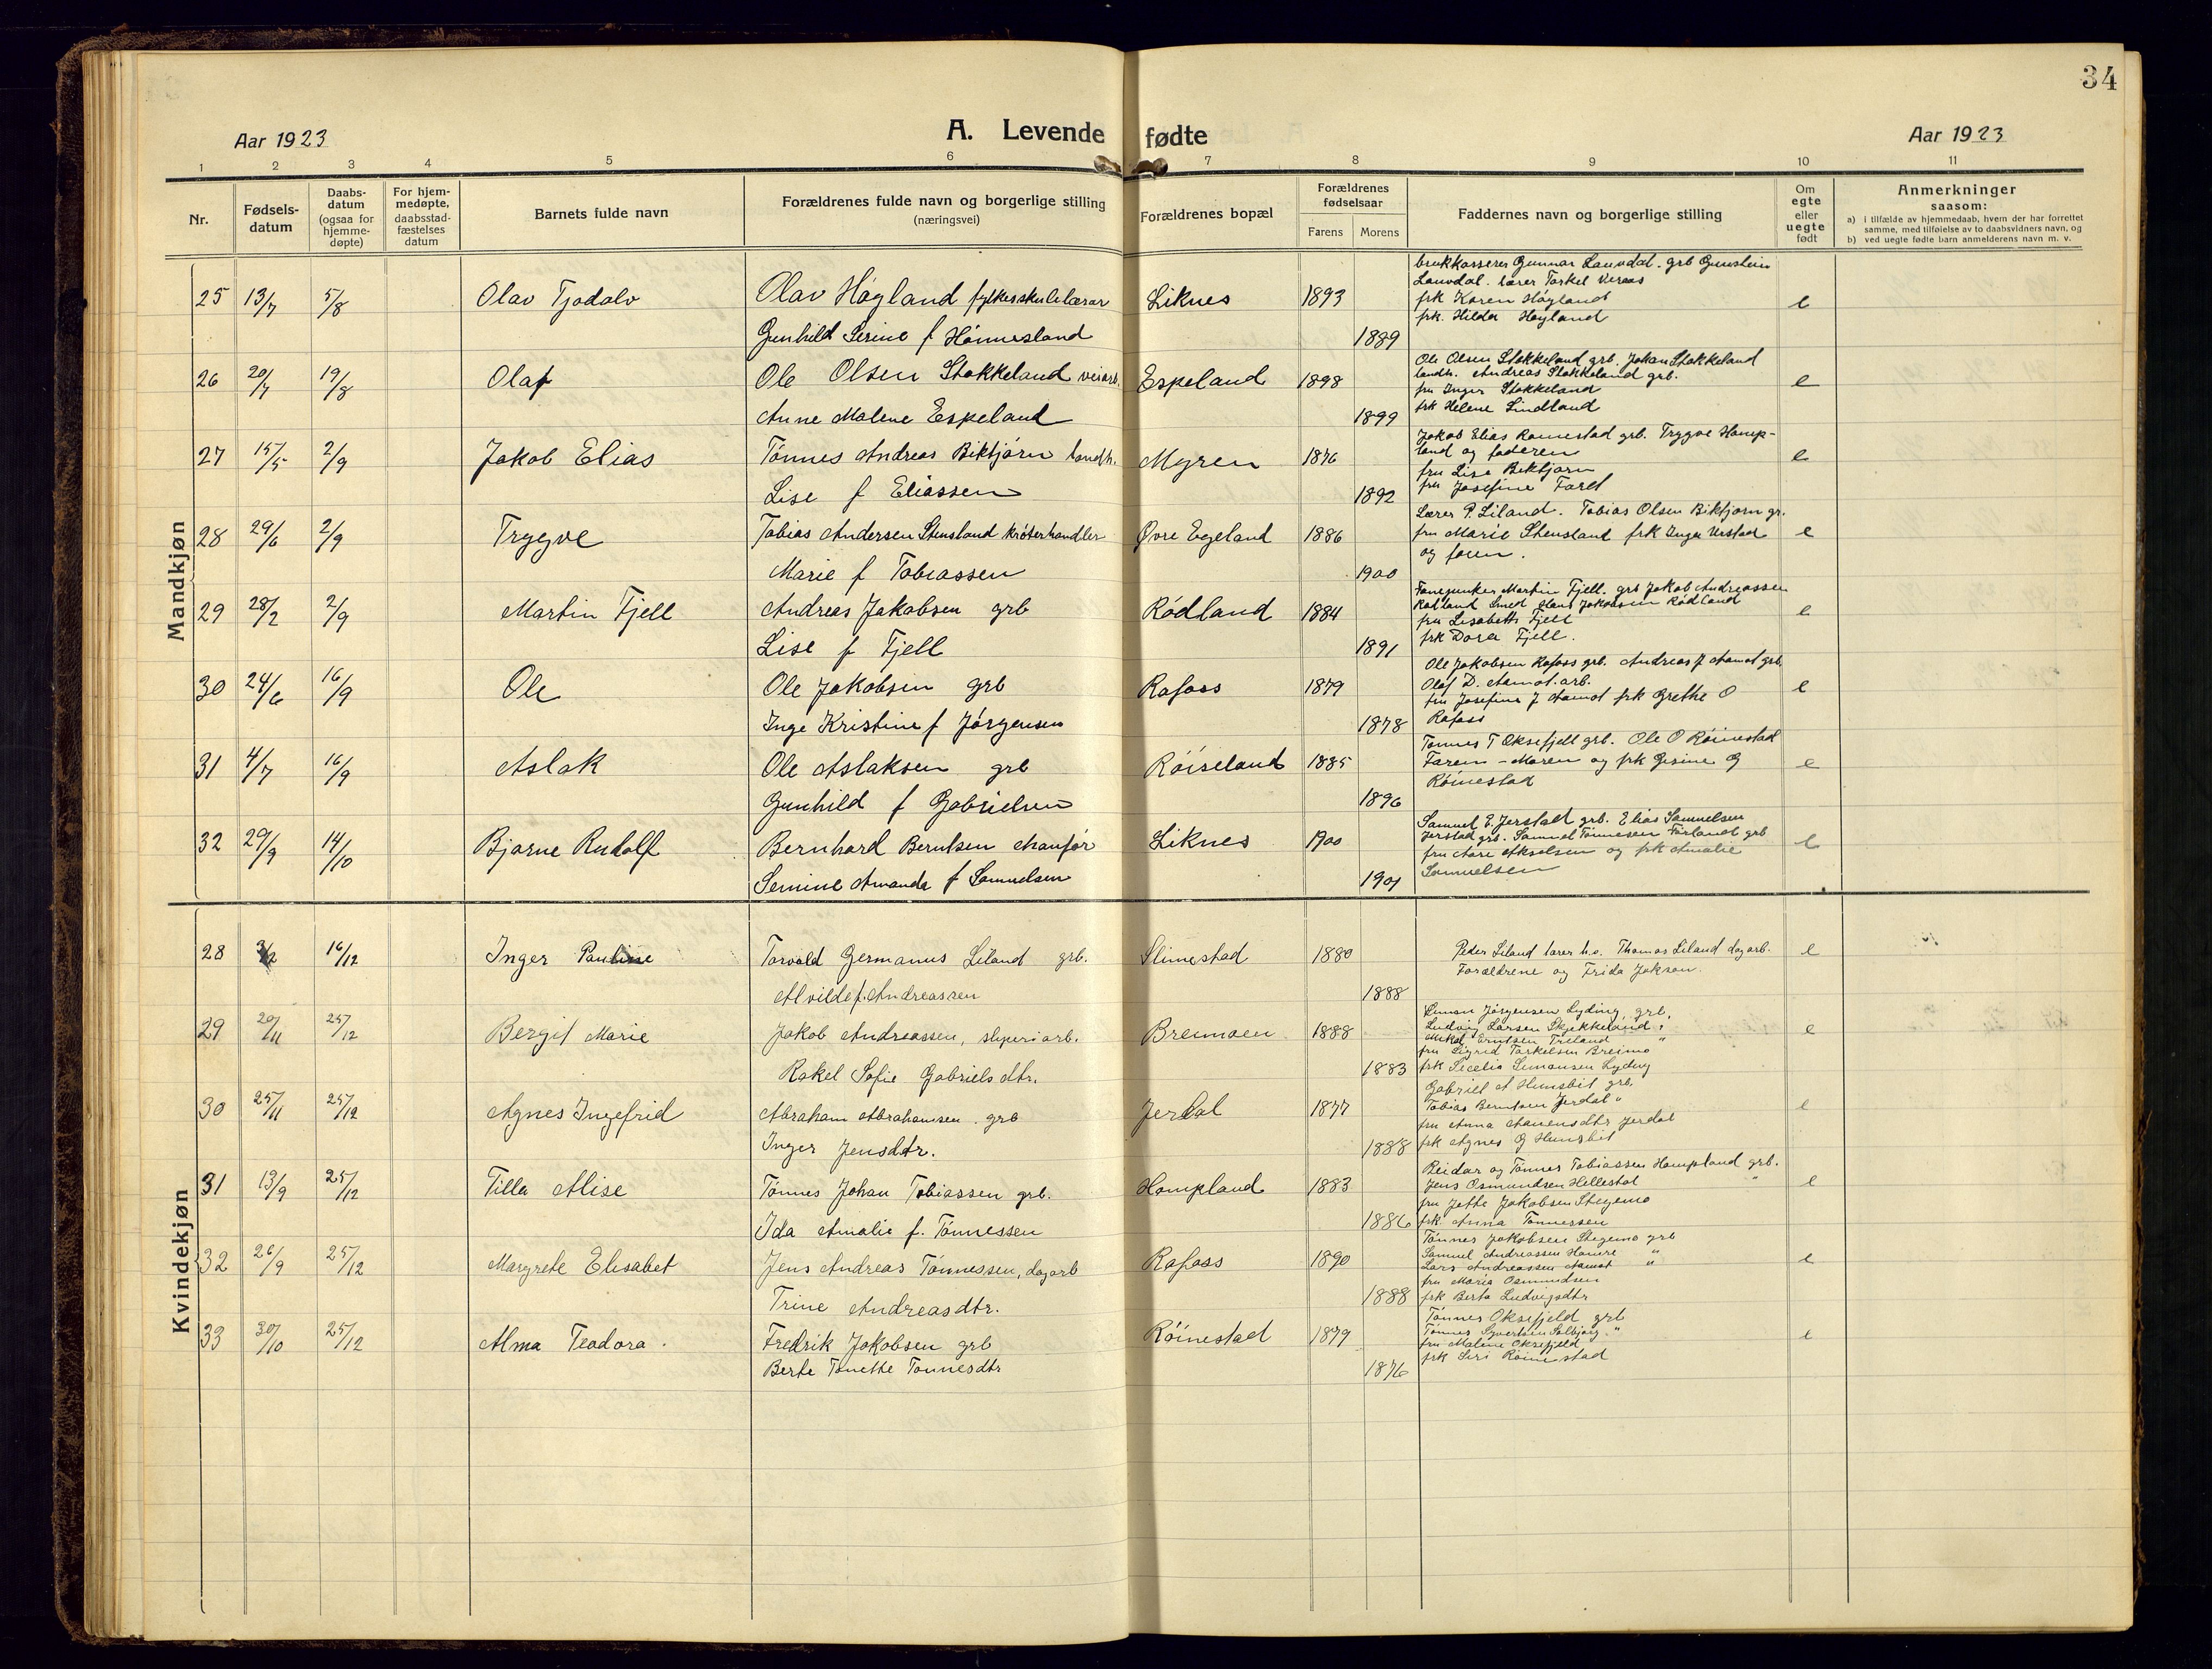 34
Aar 1923
A. Levende fødte
Aar 1923
1 2 3 4 5 6 7 8 9 10 11
Nr.
Fødsels-
datum
Daabs-
datum
(ogsaa for
hjemme-
døpte)
For hjem-
medøpte,
daabsstad-
fæstelses
datum
Barnets fulde navn
Forældrenes fulde navn og borgerlige stilling
(næringsvei)
Forældrenes bopæl
Forældrenes
fødselsaar
Farens Morens
Faddernes navn og borgerlige stilling
Om
egte
eller
uegte
født
Anmerkninger
saasom:
a) i tilfælde av hjemmedaab, hvem der har forrettet
samme, med tilføielse av to daabsvidners navn, og
b) ved uegte fødte barn anmelderens navn m. v.
Mandkjøn
25 13/7 5/8 Olav Tjodolv Olav Høgland fylkesskulelærar Liknes 1893 e
Gunhild Serine f Hønnesland 1889
brukkasserer Gunnar Lauvdal. grb Gunstein
Lauvdal. lærer Torkel
frk Karen Høgland
frk. Hilda Høgland
26 20/7 19/8 Olaf Ole Olsen Stokkeland veiarb. Espeland 1898 e
Anne Malene Espeland 1899
Ole Olsen Stokkeland grb. Johan Stokkeland
landh. Andreas Stokkeland grb.
fru Inger Stokkeland
frk Helene Lindland
27 15/5 2/9 Jakob Elias Tønnes Andreas Bikfjørn landh. Myren 1876 e
Lise f Eliassen 1892
Jakob Elias Rømestad grb. Trygve Homp-
land og faderen
fru Lise Bikfjørn
fru Josefine
28 29/6 2/9 Trygve Tobias Andersen Stensland krøterhandler Øvre Egeland 1886 e
Marie f Tobiassen 1900
Lærer P. Liland. Tobias Olsen Bikfjørn gr.
fru Marie Stensland frk Inga
og faren.
29 28/2 2/9 Martin Fjell Andreas Jakobsen grb Rødland 1884 e
Lise f Fjell 1891
Fanejunker Martin Fjell. grb Jakob Andreassen
Rødland Smed Hans Jakobsen Rødland
fru Lisabeth Fjell
frk Dora Fjell.
30 24/6 16/9 Ole Ole Jakobsen grb Rafoss 1879 e
Inge Kristine f Jørgensen 1878
Ole Jakobsen Rafoss grb. Andreas J Aamot grb.
Olaf D. Aamot. arb.
fru Josefine J Aamot frk Grethe O
Rafoss
31 4/7 16/9 Aslak Ole Aslaksen grb Røiseland 1885 e
Gunhild f Gabrielsen 1896
Tønnes T Oksefjell grb. Ole O Røinestad
Faren - Moren og frk Gesine G
Røinestad
32 29/9 14/10 Bjarne Rudolf Bernhard Berntsen Liknes 1900 e
Semine Amanda f Samuelsen 1901
Samuel E. Jerstad grb. Elias Samuelsen
Jerstad grb. Samuel Tønnesen grb
fru Aare Akselsen og frk Amalie
Samuelsen
Kvindekjøn
28 16/12 Inger Pauline Torvald Germanus Liland grb. Slimestad 1880 e
Alvilde f. Andreassen 1888
Peder Liland lærer h.o. Thomas Liland dagarb.
Forældrene og Frida Jakson.
29 20/11 25/12 Bergit Marie Jakob Andreassen, sliperiarb. Breimoen 1888 e
Rakel Sofie Gabrielsdtr. 1883
Simon Jørgensen Lyding, grb.
Ludvig Larsen Skjekkeland "
Mikal Erntsen Treland "
fru Sigrid Torkelsen Breimo
frk Secelia Simonsen Lyding
30 25/11 25/12 Agnes Ingefrid Abraham Abrahamsen. grb Jerdal 1877 e
Inger Jensdtr. 1888
Gabriel A Hunsbit grb.
Tobias Berntsen Jerdal "
fru Anna Aanensdtr Jerdal
frk Agnes G Hunsbit
31 13/9 25/12 Tilla Alise Tønnes Johan Tobiassen grb. Hompland 1883 e
Ida Amalie f. Tønnessen 1886
Reidar og Tønnes Tobiassen Hompland grb.
Jens Osmundsen Hellestøl "
fru Jette Jakobsen Stegemo
frk. Anna Tønnessen
32 26/9 25/12 Margrete Elisabet Jens Andreas Tønnessen, dagarb Rafoss 1890 e
Trine Andreasdtr. 1888
Tønnes Jakobsen Stegemo grb
Samuel Andreassen Hamre "
Lars Andreassen Aamot "
fru Maria Osmundsen
frk Berta Ludvigsdtr
33 30/10 25/12 Alma Teodora. Fredrik Jakobsen grb Røinestad 1879 e
Berte Tonette Tønnesdtr 1876
Tønnes Oksefjeld grb
Tønnes Syvertsen Solbjørg. "
fru Malene Oksefjeld
frk Siri Røinestad